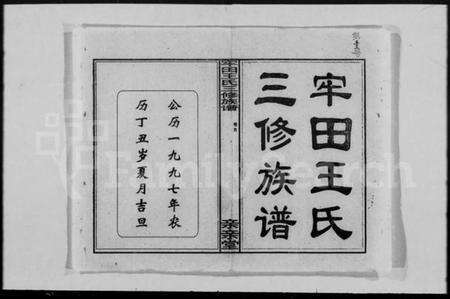 牢田王氏
三修族谱
牢田王氏三修族谱
卷首
亲亲堂
公历一九九七年农
历丁丑岁夏月吉旦
FamilySearch